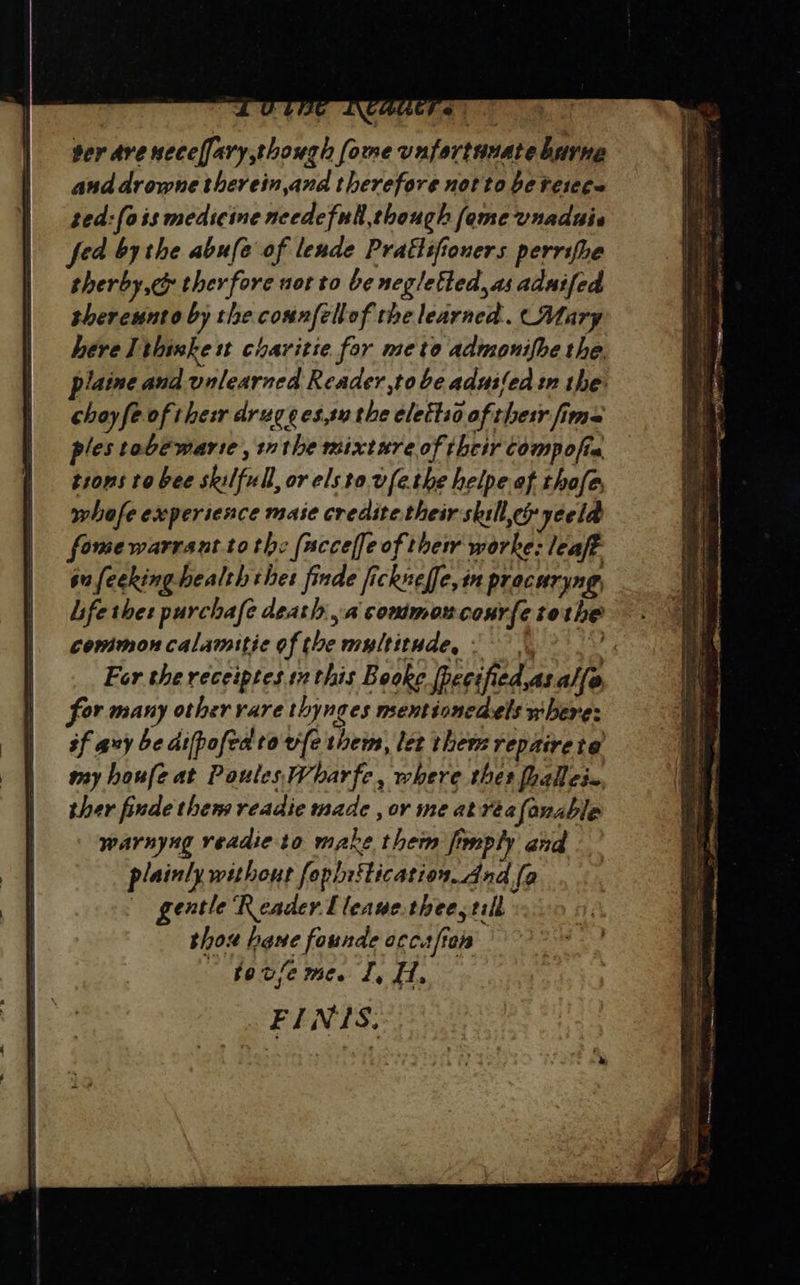 To the Readers.
ter are necessary,though some vnfortunate burne
and drowne therein,and therefore not to be reiec-
ted:so is medicine needefull,though some vnadui-
sed by the abuse of leude Practisioners perrishe
therby,& therfore not to be neglected,as aduised
thereunto by the counsell of the learned. Mary
here I thinke it charitie for me to admonishe the
plaine and vnlearned Reader,to be aduised in the
choyse of their drugges,in the electiō of their sim-
ples to be warie, in the mixture of their composi-
tions to bee skilfull, or els to vse the helpe of those,
whose experience maie credite their skill,& yeeld
some warrant to the successe of their worke: least
in seeking health thei finde sicknesse,in procuryng
life thei purchase death, a common course to the
common calamitie of the multitude.
For the receiptes in this Booke specified,as also
for many other rare thynges mentioned els where:
if any be disposed to vse them, let them repaire to
my house at Poules Wharfe, where thei shall ei-
ther finde them readie made , or me at reasonable
warnyng readie to make them simply and
plainly without sophistication. And so
gentle Reader I leaue thee, till
thou haue founde occasion
to vse me. I. H.
FINIS.